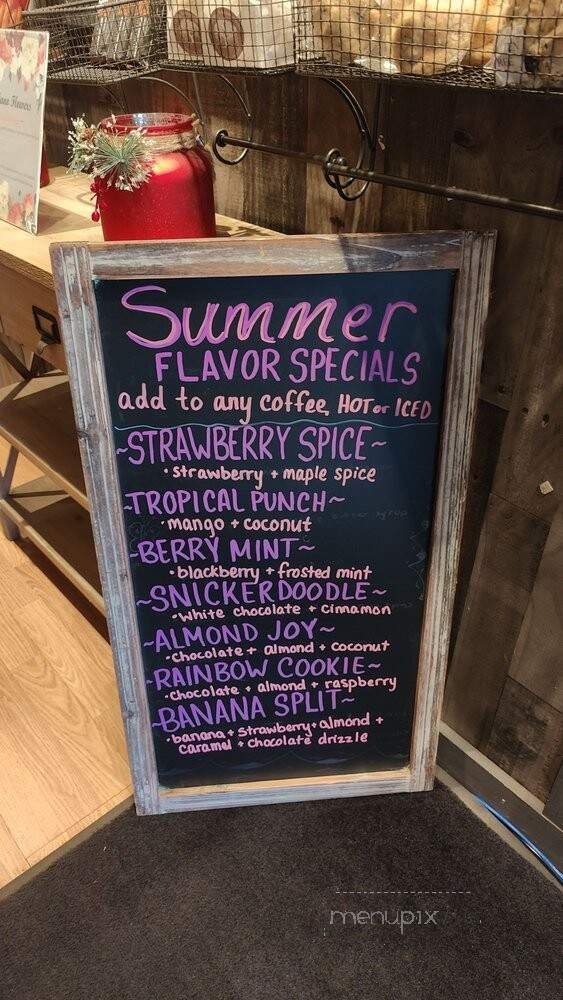 Summer
FLAVOR SPECIALS
add to any coffee, HOT or ICED
~STRAWBERRY SPICE~
•strawberry + maple spice
~TROPICAL PUNCH~
•mango + coconut
~BERRY MINT~
•blackberry + frosted mint
~SNICKERDOODLE~
•white chocolate + cinnamon
~ALMOND JOY~
•chocolate + almond + coconut
~RAINBOW COOKIE~
•chocolate + almond + raspberry
~BANANA SPLIT~
•banana + strawberry + almond +
caramel + chocolate drizzle
menupix